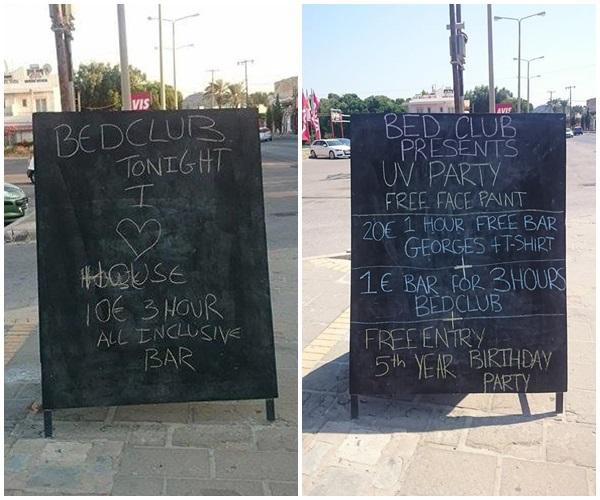 AVIS
BEDCLUB
TONIGHT
I
♡
HOUSE
10€ 3 HOUR
ALL INCLUSIVE
BAR
AVIS
BED CLUB
PRESENTS
UV PARTY
FREE FACE PAINT
20€ 1 HOUR FREE BAR
GEORGES + T-SHIRT
+
1€ BAR FOR 3 HOURS
BEDCLUB
+
FREE ENTRY
5th YEAR BIRTHDAY
PARTY